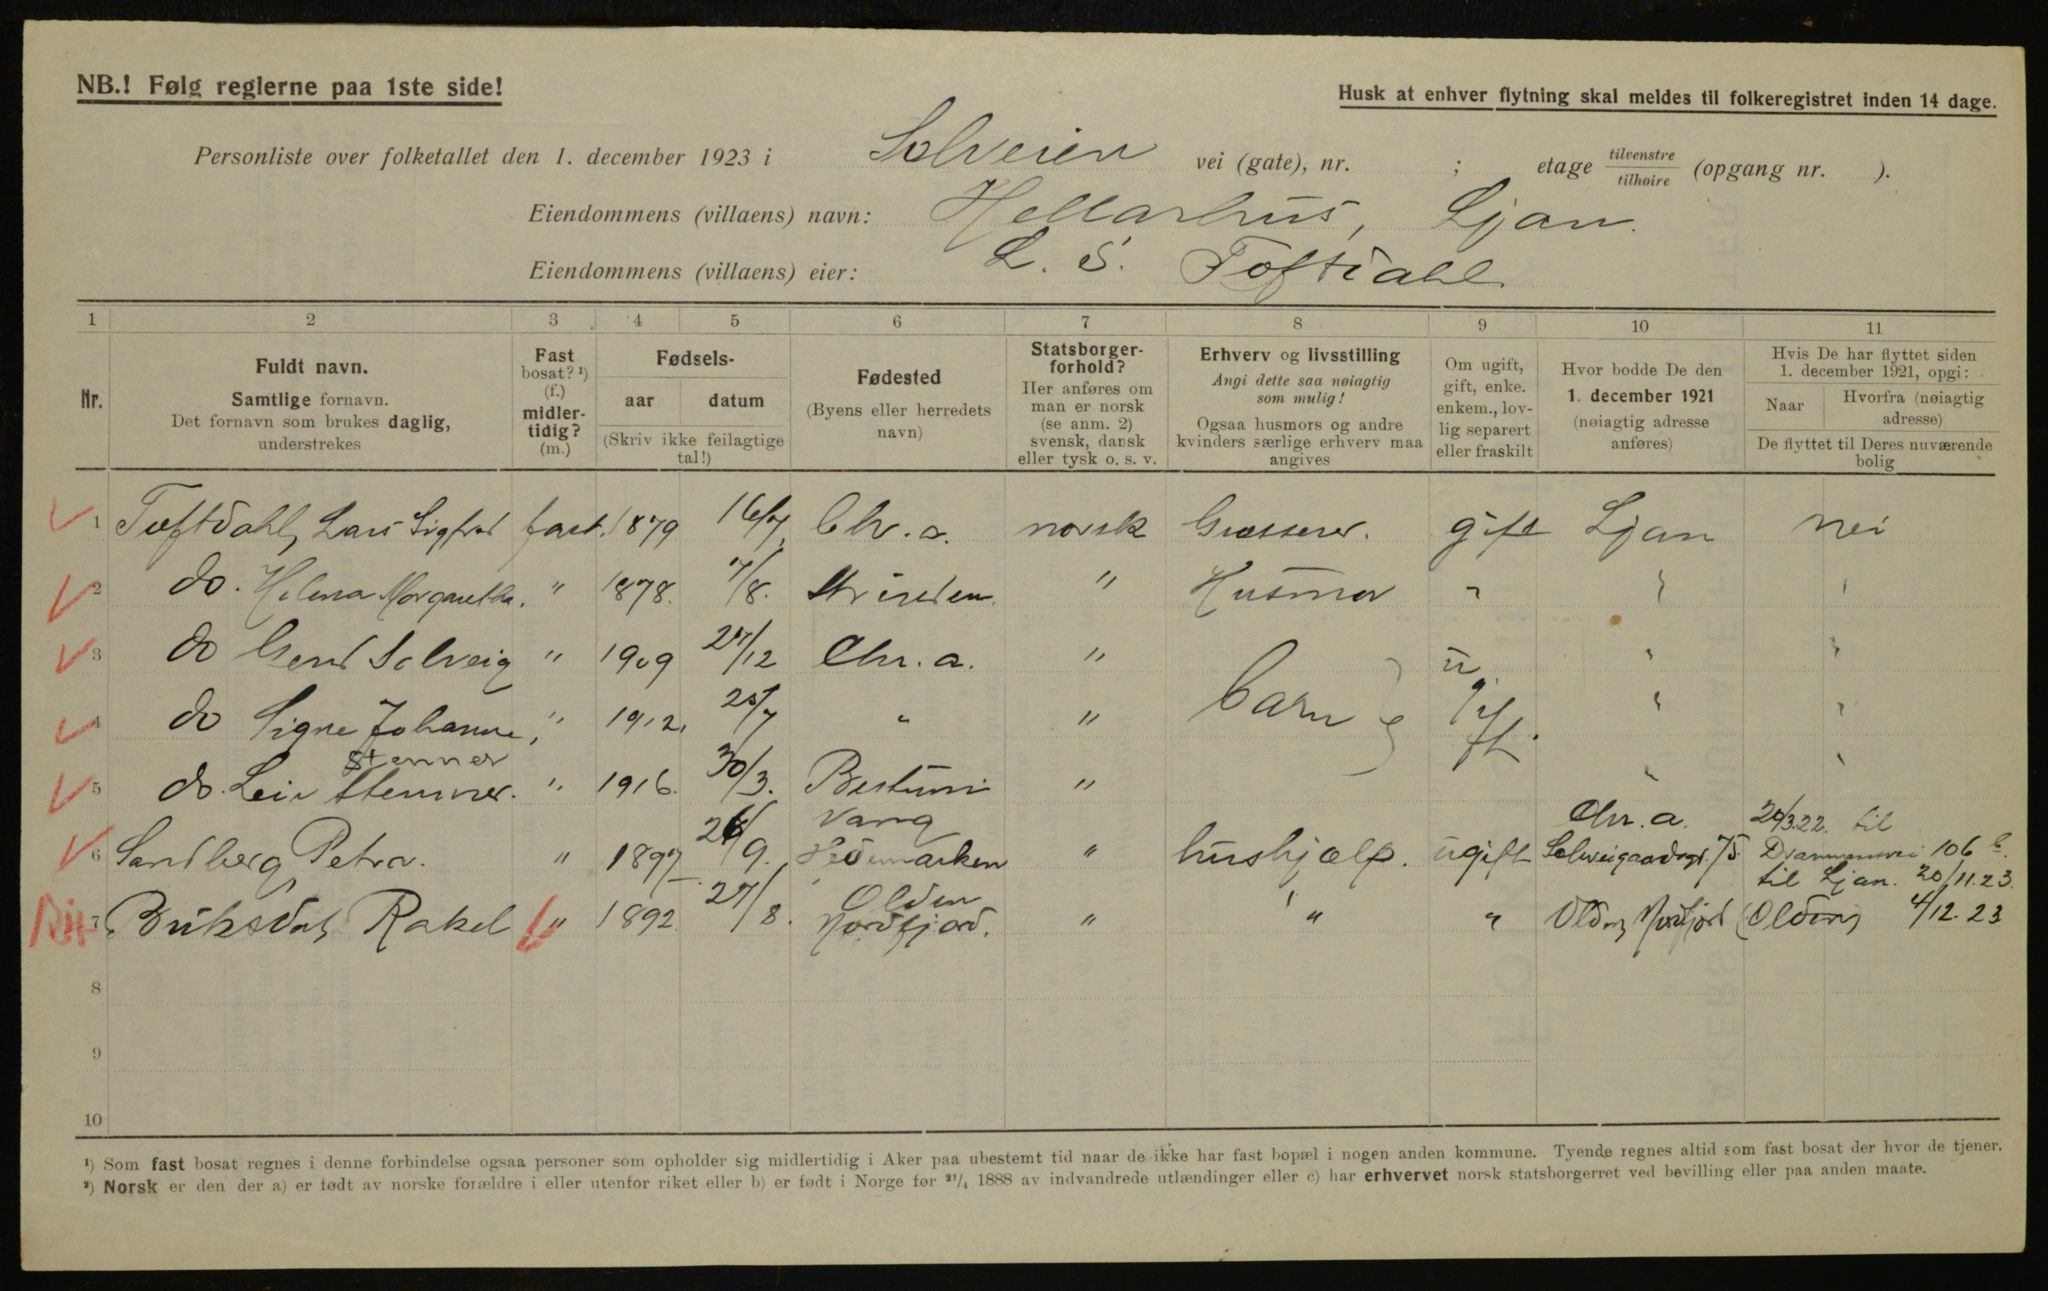 NB.! Følg reglerne paa 1ste side!
Husk at enhver flytning skal meldes til folkeregistret inden 14 dage.
Personliste over folketallet den 1. december 1923 i Solveien vei (gate), nr. ; etage tilvenstre/tilhøire (opgang nr. ).
Eiendommens (villaens) navn: Hellarhus, Ljan.
Eiendommens (villaens) eier: L. S. Toftdahl
1 2 3 4 5 6 7 8 9 10 11
Nr.
Fuldt navn.
Samtlige fornavn.
Det fornavn som brukes daglig, understrekes
Fast bosat? ¹) (f.) midlertidig? (m.)
Fødsels-
aar datum
(Skriv ikke feilagtige tal!)
Fødested
(Byens eller herredets navn)
Statsborgerforhold?
Her anføres om man er norsk (se anm. 2) svensk, dansk eller tysk o. s. v.
Erhverv og livsstilling
Angi dette saa nøiagtig som mulig!
Ogsaa husmors og andre kvinders særlige erhverv maa angives
Om ugift, gift, enke. enkem., lovlig separert eller fraskilt
Hvor bodde De den 1. december 1921 (nøiagtig adresse anføres)
Hvis De har flyttet siden 1. december 1921, opgi:
Naar Hvorfra (nøiagtig adresse)
De flyttet til Deres nuværende bolig
1 Toftdahl, Lars Sigfred fast. 1879 16/7 Chr. a. norsk Grosserer. gift Ljan nei
2 do. Helena Margaretha. " 1878. 7/8. " Husmor " " "
3 do Gerd Solveig " 1909 27/12 Chr. a. " barn ugift. " "
4 do Signe Johanne, " 1912. 25/7 " " " "
Stenner
5 do. Leiv Stenner. " 1916. 30/3. Bestum " " "
6 Sandberg Petra. " 1897 26/9. Vang Hedemarken " hushjælp. ugift Chr. a. Schweigaardsgt. 75. 20/3.22. til Drammensvei 106 b. til Ljan. 20/11.23.
7 Briksdal, Rakel " 1892 27/8. Olden Nordfjord. " " " Olden, Nordfjord (Olden) 4/12.23
8
9
10
¹) Som fast bosat regnes i denne forbindelse ogsaa personer som opholder sig midlertidig i Aker paa ubestemt tid naar de ikke har fast bopæl i nogen anden kommune. Tyende regnes altid som fast bosat der hvor de tjener.
²) Norsk er den der a) er født av norske forældre i eller utenfor riket eller b) er født i Norge før 21/4 1888 av indvandrede utlændinger eller c) har erhvervet norsk statsborgerret ved bevilling eller paa anden maate.